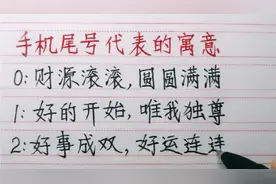 手机尾号代表的寓意
0:财源滚滚,圆圆满满
1:好的开始,唯我独尊
2:好事成双,好运连连